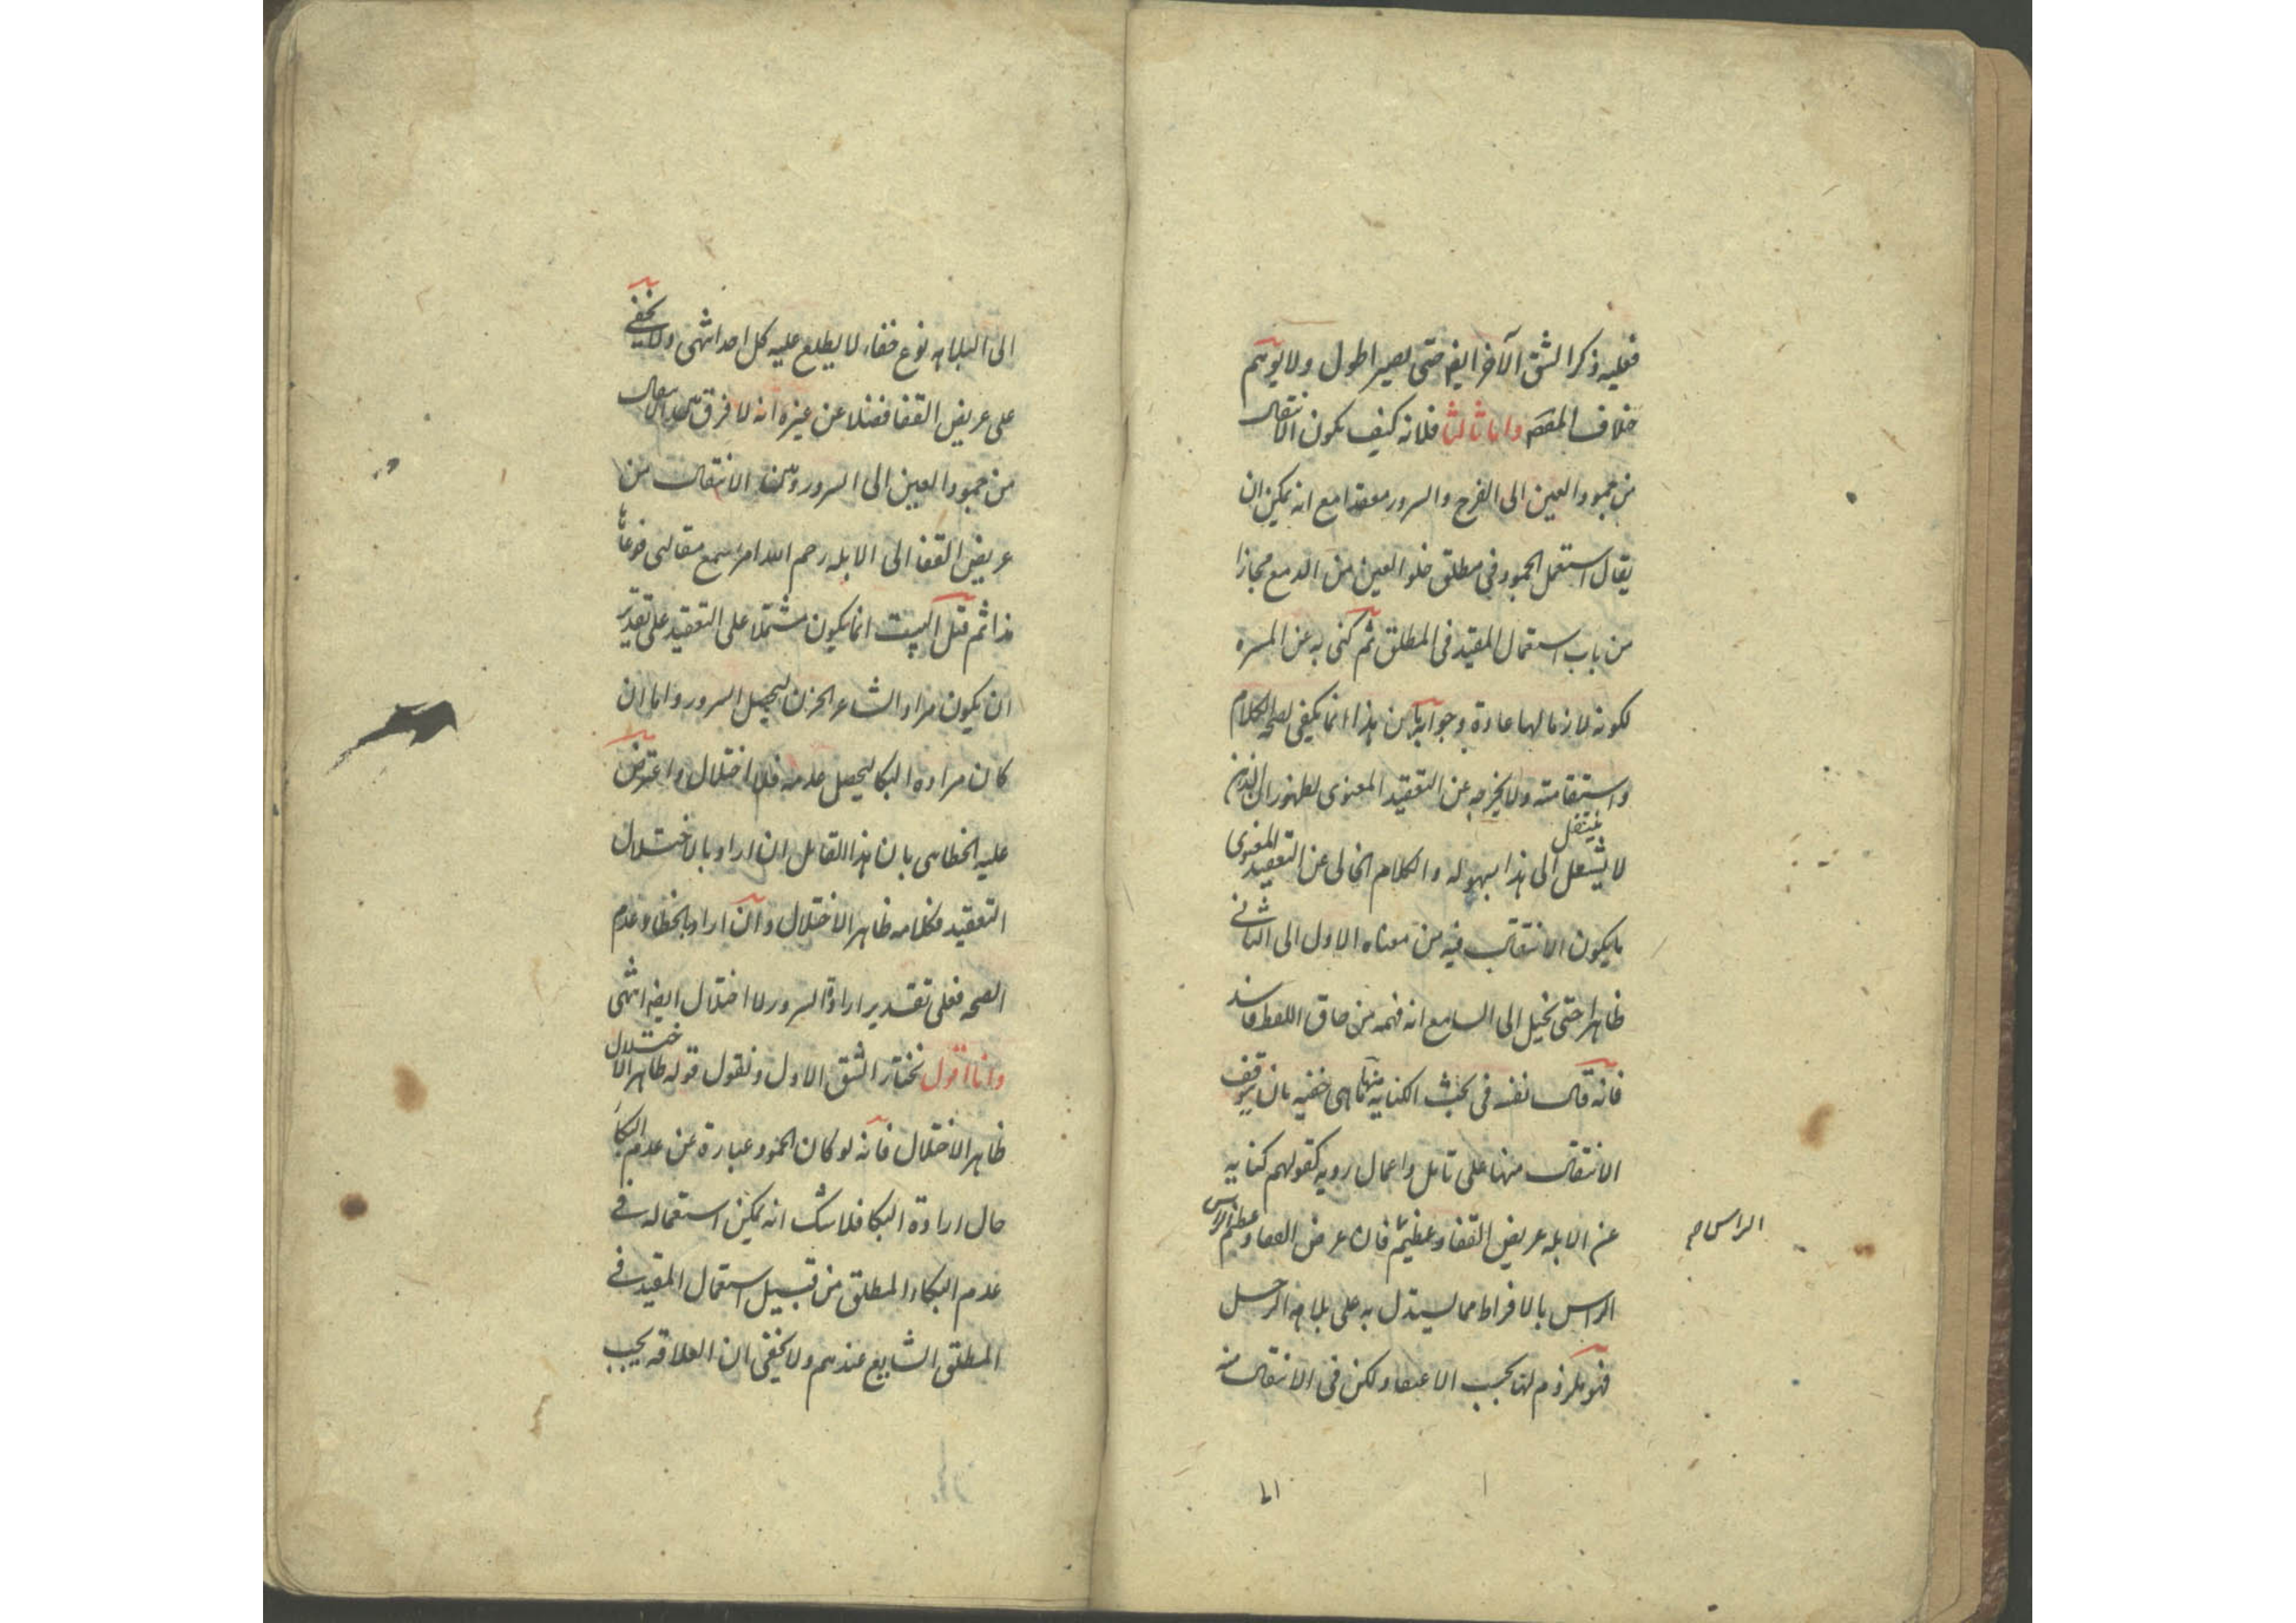 فعليه ذكر الشق الآخر ايضا حتى يصير اطول ولا يوهم
خلاف المقصد واما ثالثا فلانه كيف يكون الانتقال
من جمود العين الى الفرح والسرور معقدا مع انه يمكن ان
يقال استعمل الجمود في مطلق خلو العين من الدمع مجازا
من باب استعمال المقيد في المطلق ثم كنى به عن المسره
لكونه لازما لها عادة وجوابه ان هذا انما يكفي لصحة الكلام
واستقامته ولا يخرجه عن التعقيد المعنوى لظهور ان الذهن
ينتقل
لا الى هذا بسهوله والكلام الخالى عن التعقيد المعنوى
ما يكون الانتقال فيه من معناه الاول الى الثاني
ظاهرا حتى يخيل الى السامع انه فهمه من حاق اللفظ
فانه قال نفسه في بحث الكنايه منها ما هى خفيه بان يتوقف
الانتقال منها على تامل واعمال رويه كقولهم كنايه
عن الابله عريض القفا فان عرض القفا وعظم الراس
الراس
الراس بالافراط مما يستدل به على بلاهه الرجل
فهو ملزوم لها بحسب الاعتقاد لكن فى الانتقال منه
الى
الى البلاهه نوع خفاء لا يطلع عليه كل احد انتهى ولا يخفى
على عريض القفا فضلا عن غيره انه لا فرق بين الانتقال
من جمود العين الى السرور وبين الانتقال من
عريض القفا الى الابله رحم الله امرء سمع مقالتى فوعاها
هذا ثم قيل البيت انما يكون مشتملا على التعقيد على تقدير
ان يكون مراد الشاعر الحزن ليحصل السرور واما ان
كان مراده البكا ليحصل عدمه فلا اختلال واعترض
عليه الخطاىى بان هذا القائل ان اراد بالاختلال
التعقيد فكلامه ظاهر الاختلال وان اراد به الخطا وعدم
الصحه فعلى تقدير ارادة السرور لا اختلال ايضا انتهى
وانا اقول نختار الشق الاول ونقول قوله ظاهر الاختلال
ظاهر الاختلال فانه لو كان الجمود عبارة عن عدم البكاء
حال ارادة البكا فلا شك انه يمكن استعماله في
عدم البكاء المطلق من قبيل استعمال المقيد في
المطلق الشايع عندهم ولا يخفى ان العلاقه يجب